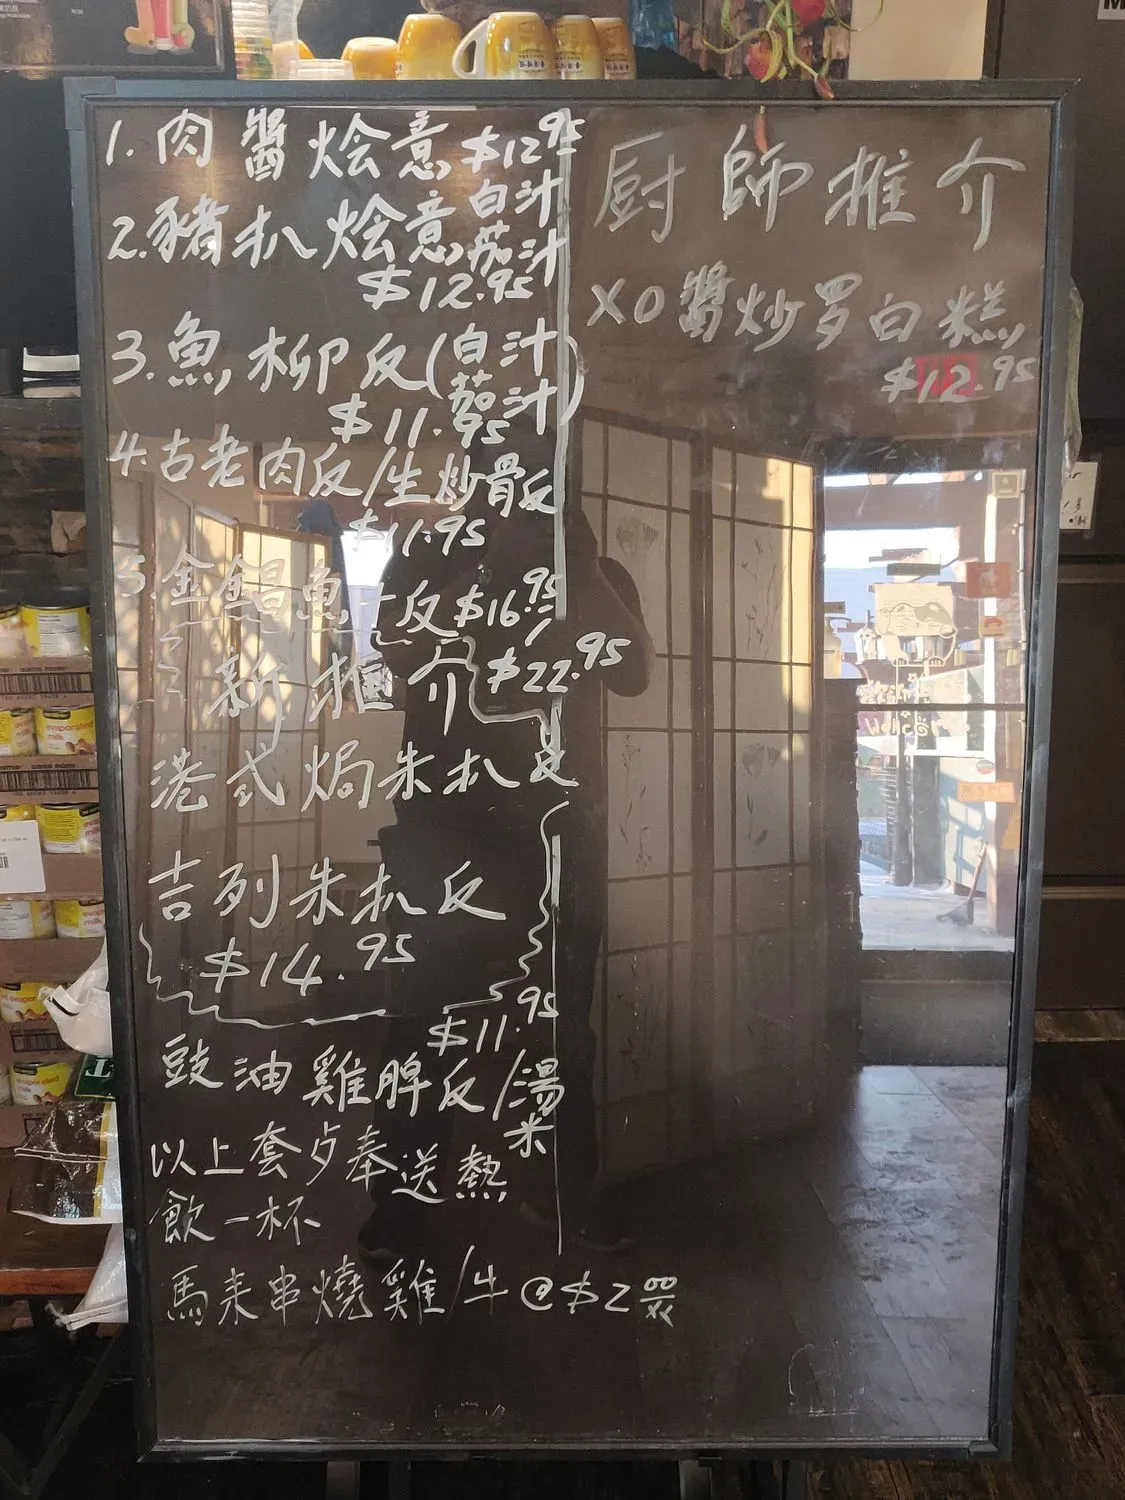 1. 肉醬烩意 $12.95
2. 豬扒烩意 白汁
茄汁
$12.95
3. 魚柳反(白汁
茄汁)
$11.95
4. 古老肉反/生炒骨反
$11.95
5 金錩魚 反 $16.95
/
新推介 $22.95
港式焗朱扒
吉列朱扒反
$14.95
$11.95
豉油雞脾反/湯
米
以上套歺奉送熱
飲一杯
馬来串燒雞/牛@$2.00
厨師推介
XO醬炒罗白糕
$12.95
evaporated
milk